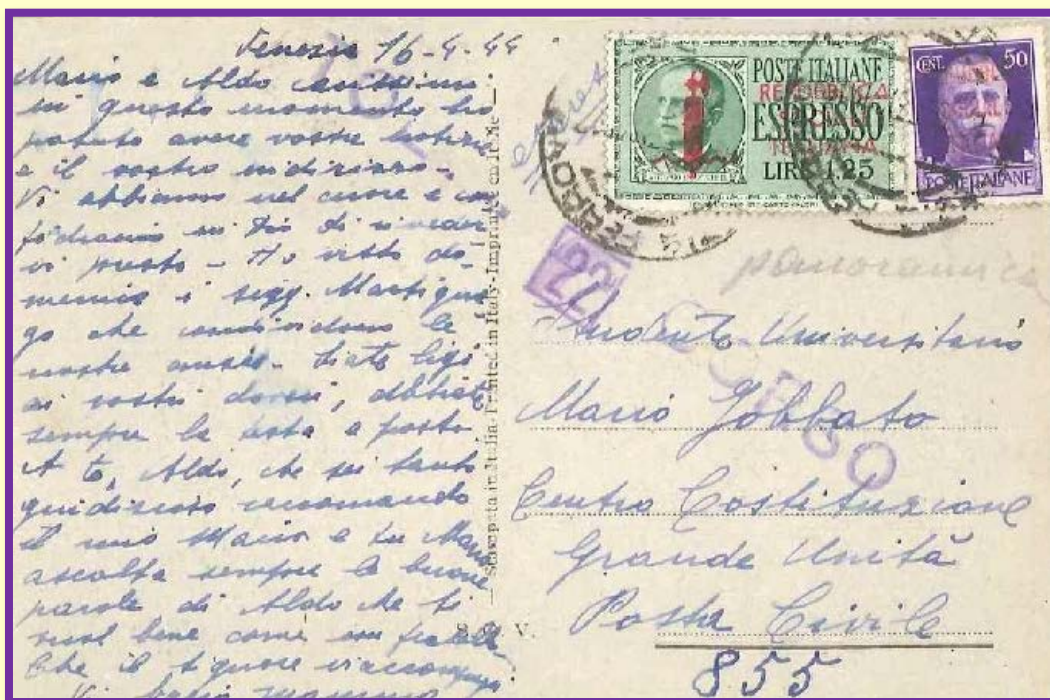 Venezia 16-4-44
Mario e Aldo carissimi
in questo momento ho
potuto avere vostre notizie
e il vostro indirizzo -
Vi abbiamo nel cuore e con
fidiamo in Dio di riveder
vi presto - Ho visto do
menica i sigg. Martigna
go che condividono le
nostre ansie. Siate ligi
ai vostri doveri, abbiate
sempre la testa a posto
A te, Aldo, che sei tanto
giudizioso raccomando
il mio Mario e tu Mario
ascolta sempre le buone
parole di Aldo che ti
vuol bene come un fratello
Che il Signore vi accompagni
Vi bacio mamma
Stampata in Italia - Printed in Italy - Imprimée en Italie
S. V.
POSTE ITALIANE
REPUBBLICA
SOCIALE
ITALIANA
ESPRESSO
LIRE 1,25
CENT. 50
POSTE ITALIANE
22
panoramica
Studente Universitario
Mario Gobbato
Centro Costituzione
Grande Unità
Posta Civile
855